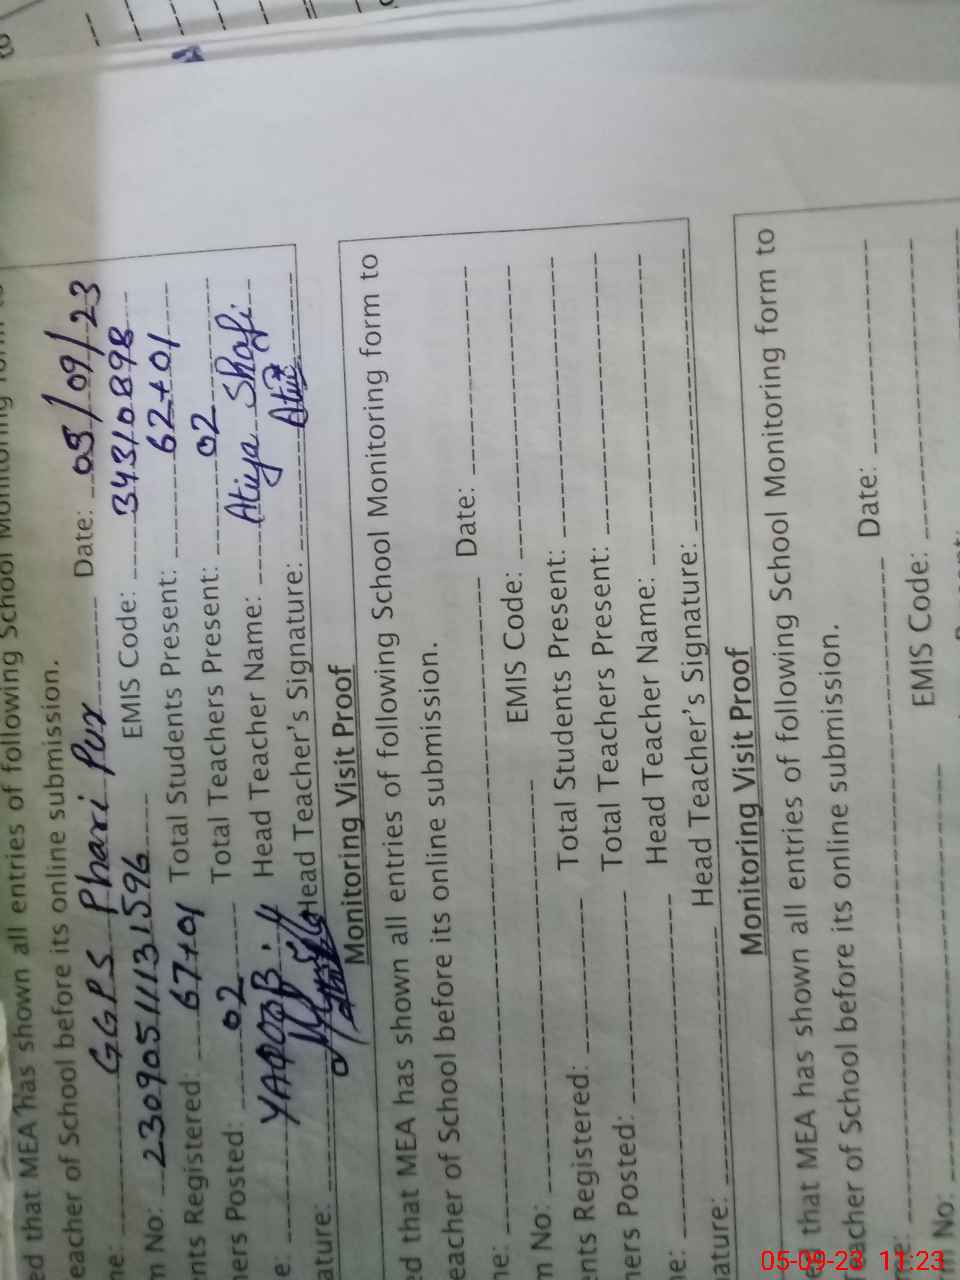 ed that MEA has shown all entries of following School Monitoring form to
eacher of School before its online submission.
me: G.G.P.S Phari Pur Date: 05/09/23
m No: 230905111131596 EMIS Code: 34310898
nts Registered: 67+01 Total Students Present: 62+01
hers Posted: 02 Total Teachers Present: 02
e: YAQOOB Head Teacher Name: Atiya Shafi
ature: Head Teacher's Signature: Atiya
Monitoring Visit Proof
ed that MEA has shown all entries of following School Monitoring form to
eacher of School before its online submission.
ne: Date:
m No: EMIS Code:
nts Registered: Total Students Present:
ners Posted: Total Teachers Present:
ne: Head Teacher Name:
ature: Head Teacher's Signature:
Monitoring Visit Proof
that MEA has shown all entries of following School Monitoring form to
eacher of School before its online submission.
e: Date:
m No: EMIS Code:
05-09-23 11:23